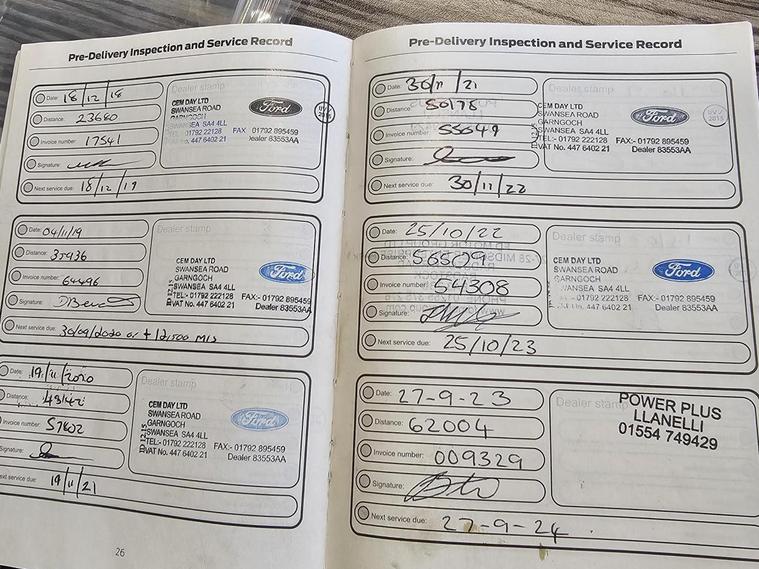 Pre-Delivery Inspection and Service Record
Date: 18/12/18
Distance: 23660
Invoice number: 17541
Signature:
Next service due: 18/12/19
Dealer stamp
CEM DAY LTD
SWANSEA ROAD
GARNGOCH
SWANSEA SA4 4LL
TEL:- 01792 222128 FAX 01792 895459
VAT No. 447 6402 21 Dealer 83553AA
Ford
Date: 04/11/19
Distance:
Invoice number: 64496
Signature:
Next service due: 30/09/2020 or + 12,500 MLS
Dealer stamp
CEM DAY LTD
SWANSEA ROAD
GARNGOCH
SWANSEA SA4 4LL
TEL:- 01792 222128 FAX:- 01792 895459
VAT No. 447 6402 21 Dealer 83553AA
Ford
Date: 19/11/2020
Distance: 43142
Invoice number: 57602
Signature:
Next service due: 19/11/21
Dealer stamp
CEM DAY LTD
SWANSEA ROAD
GARNGOCH
SWANSEA SA4 4LL
TEL:- 01792 222128 FAX:- 01792 895459
VAT No. 447 6402 21 Dealer 83553AA
Ford
26
Pre-Delivery Inspection and Service Record
Date: 30/11/21
Distance: 50178
Invoice number: 55649
Signature:
Next service due: 30/11/22
Dealer stamp
CEM DAY LTD
SWANSEA ROAD
GARNGOCH
SWANSEA SA4 4LL
TEL:- 01792 222128 FAX:- 01792 895459
VAT No. 447 6402 21 Dealer 83553AA
Ford
Date: 25/10/22
Distance:
Invoice number: 54308
Signature:
Next service due: 25/10/23
Dealer stamp
CEM DAY LTD
SWANSEA ROAD
GARNGOCH
SWANSEA SA4 4LL
TEL:- 01792 222128 FAX:- 01792 895459
VAT No. 447 6402 21 Dealer 83553AA
Ford
Date: 27-9-23
Distance: 62004
Invoice number: 009329
Signature:
Next service due: 27-9-24
Dealer stamp
POWER PLUS
LLANELLI
01554 749429